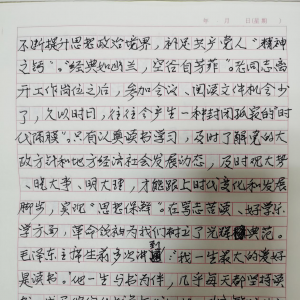 年 月 日(星期 )
不断提升思想政治境界，补足共产党人“精神
之钙”。“经典如幽兰，空谷自芳菲”。老同志离
开工作岗位之后，参加会议、阅读文件机会少
了，久以时日，往往会产生一种封闭孤寂的“时
代隔膜”。只有认真读书学习，及时了解党的大
政方针和地方经济社会发展动态，及时观大势
、晓大事、明大理，才能跟上时代变化和发展
脚步，实现“思想保鲜”。在笃志苦读、好学乐
学方面，革命领袖为我们树立了光辉典范。
毛泽东主席生前多次讲到：“我一生最大的爱好
是读书。”他一生与书为伴，几乎每天都坚持读